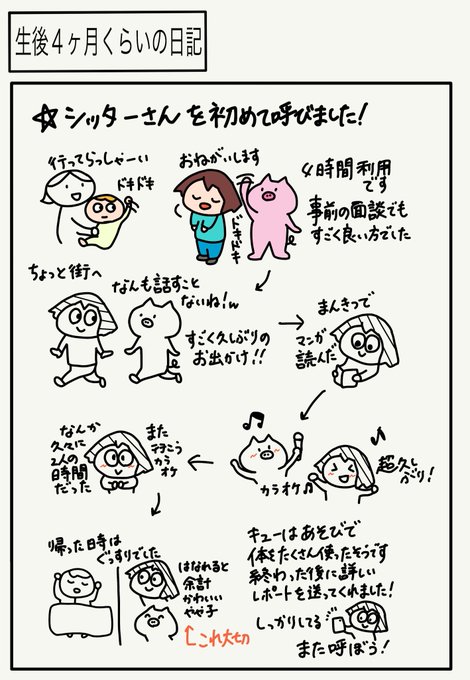 生後4ヶ月くらいの日記
☆シッターさんを初めて呼びました!
行ってらっしゃーい
ドキドキ
おねがいします
ドキドキ
4時間利用
です
事前の面談でも
すごく良い方でした
ちょっと街へ
なんも話すこと
ないね!w
すごく久しぶりの
お出かけ!!
まんきつで
マンガ
読んだ
カラオケ♫
超久し
ぶり!
また
行こう
カラ
オケ
なんか
久々に
2人の
時間
だった
帰った時は
ぐっすりでした
はなれると
余計
かわいい
やせ子
これ大切
キューはあそびで
体をたくさん使ったそうです
終わった後に詳しい
レポートを送ってくれました!
しっかりしてる
また呼ぼう!